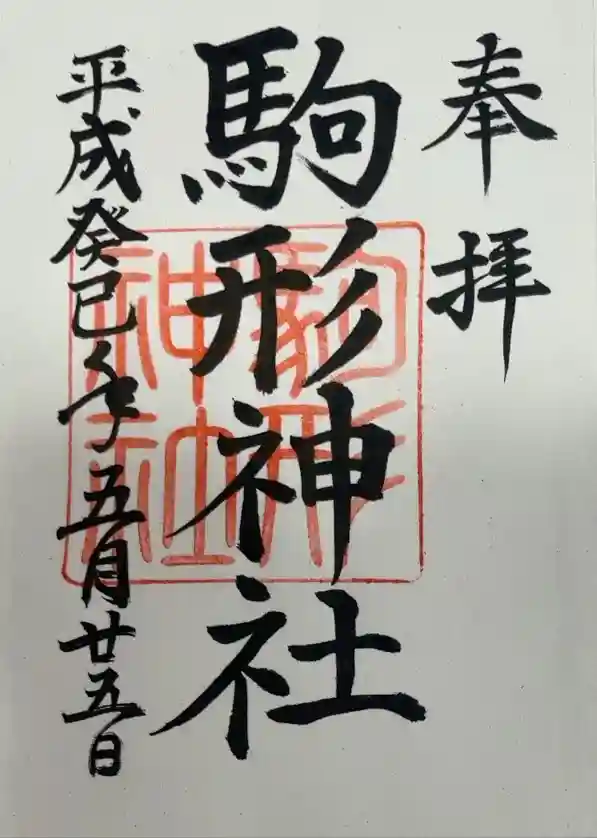 奉拝
駒形神社
駒形
神社
平成癸巳年五月廿五日